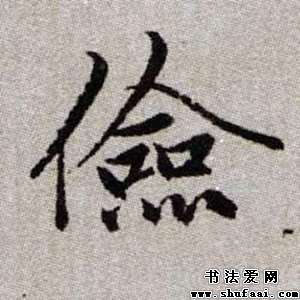 儉
书法爱网
www.shufaai.com